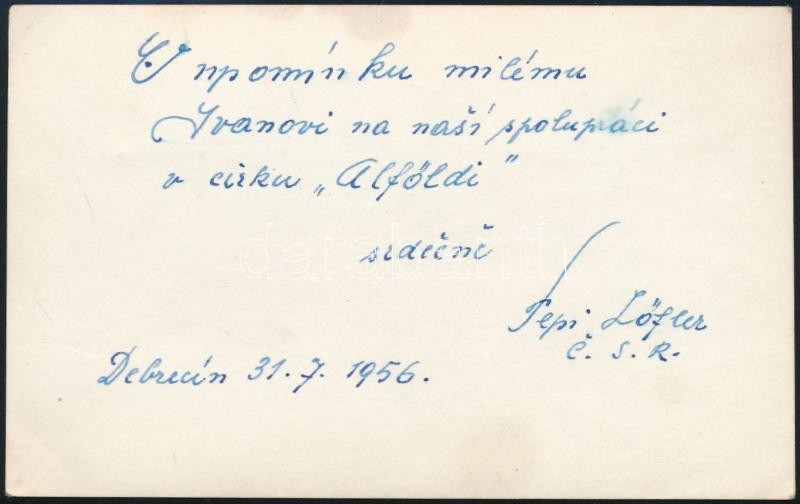 V upomínku milému
Ivanovi na naší spolupráci
v cirku „Alföldi"
srdečně
Pepi Löfler
Č. S. R.
Debrecín 31. 7. 1956.
darabanth